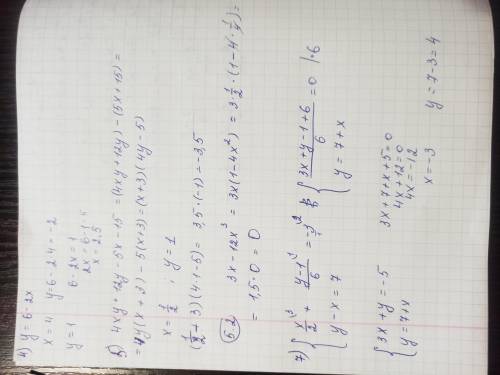 4) y = 6 - 2x
x = 4 y = 6 - 2·4 = -2
y = 1 6 - 2x = 1
2x = 6 - 1
x = 2,5
5) 4xy + 12y - 5x - 15 = (4xy + 12y) - (5x + 15) =
= 4y(x + 3) - 5(x + 3) = (x + 3)(4y - 5)
x = 1/2 ; y = 1
(1/2 + 3)(4·1 - 5) = 3,5·(-1) = -3,5
5.2 3x - 12x³ = 3x(1 - 4x²) = 3·1/2·(1 - 4·1/4) =
= 1,5·0 = 0
7) { x/2 + (y-1)/6 = -1 { (3x + y - 1 + 6)/6 = 0 |·6
y - x = 7 y = 7 + x
{ 3x + y = -5 3x + 7 + x + 5 = 0
y = 7 + x 4x + 12 = 0
4x = -12
x = -3 y = 7 - 3 = 4